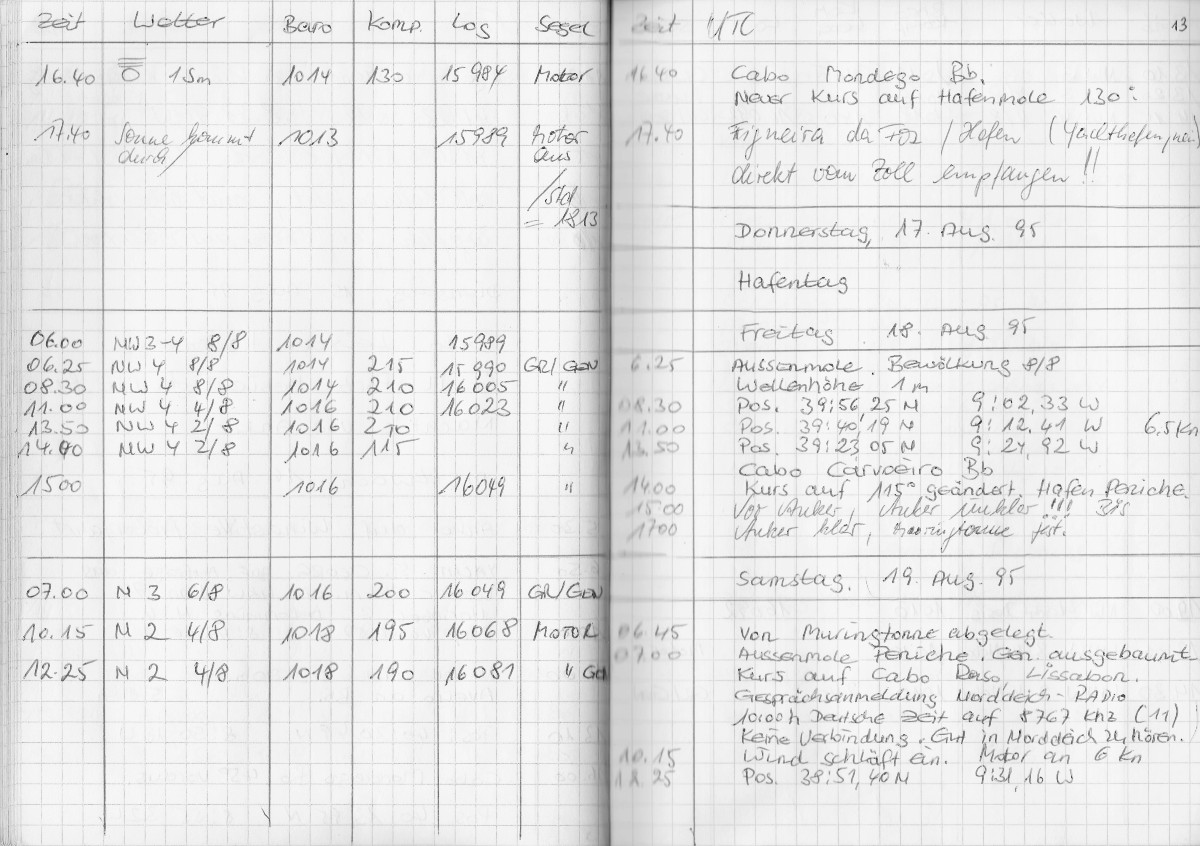 Zeit Wetter Baro Komp. Log Segel
16.40 1Sm 1014 130 15984 Motor
17.40 Sonne kommt 1013 15989 Motor
durch aus
/Std
= 1813
06.00 NW3-4 8/8 1014 15989
06.25 NW 4 8/8 1014 215 15990 GR/GEN
08.30 NW 4 8/8 1014 210 16005 "
11.00 NW 4 4/8 1016 210 16023 "
13.50 NW 4 2/8 1016 210 "
14.00 NW 4 2/8 1016 115 "
1500 1016 16049 "
07.00 N 3 6/8 1016 200 16049 GR/GEN
10.15 N 2 4/8 1018 195 16068 MOTOR
12.25 N 2 4/8 1018 190 16081 " Gen
Zeit UTC 13
16.40 Cabo Mondego Bb.
Neuer Kurs auf Hafenmole 130°
17.40 Figueira da Foz / Hafen
direkt vom Zoll empfangen !!
Donnerstag, 17. Aug. 95
Hafentag
Freitag 18. Aug 95
6.25 Aussenmole. Bewölkung 8/8
Wellenhöhe 1m
08.30 Pos. 39:56,25 N 9:02,33 W
11.00 Pos. 39:40,19 N 9:12,41 W 6,5Kn
13.50 Pos. 39:23,05 N 9:24,92 W
Cabo Carvoeiro Bb
1400 Kurs auf 115° geändert. Hafen Peniche.
1500 Vor Anker, Anker unklar !!! Bis
1700 Anker klar, Mooringtonne fest.
Samstag, 19. Aug. 95
06.45 Von Muringtonne abgelegt.
07.00 Aussenmole Peniche. Gen. ausgebaumt
Kurs auf Cabo Raso, Lissabon.
Gesprächsanmeldung Norddeich-RADio
10.00h Deutsche Zeit auf 8767 Khz (11)
Keine Verbindung. Gut in Norddeich zu hören.
10.15 Wind schläft ein. Motor an 6 Kn
12.25 Pos. 38:51,40 N 9:31,16 W